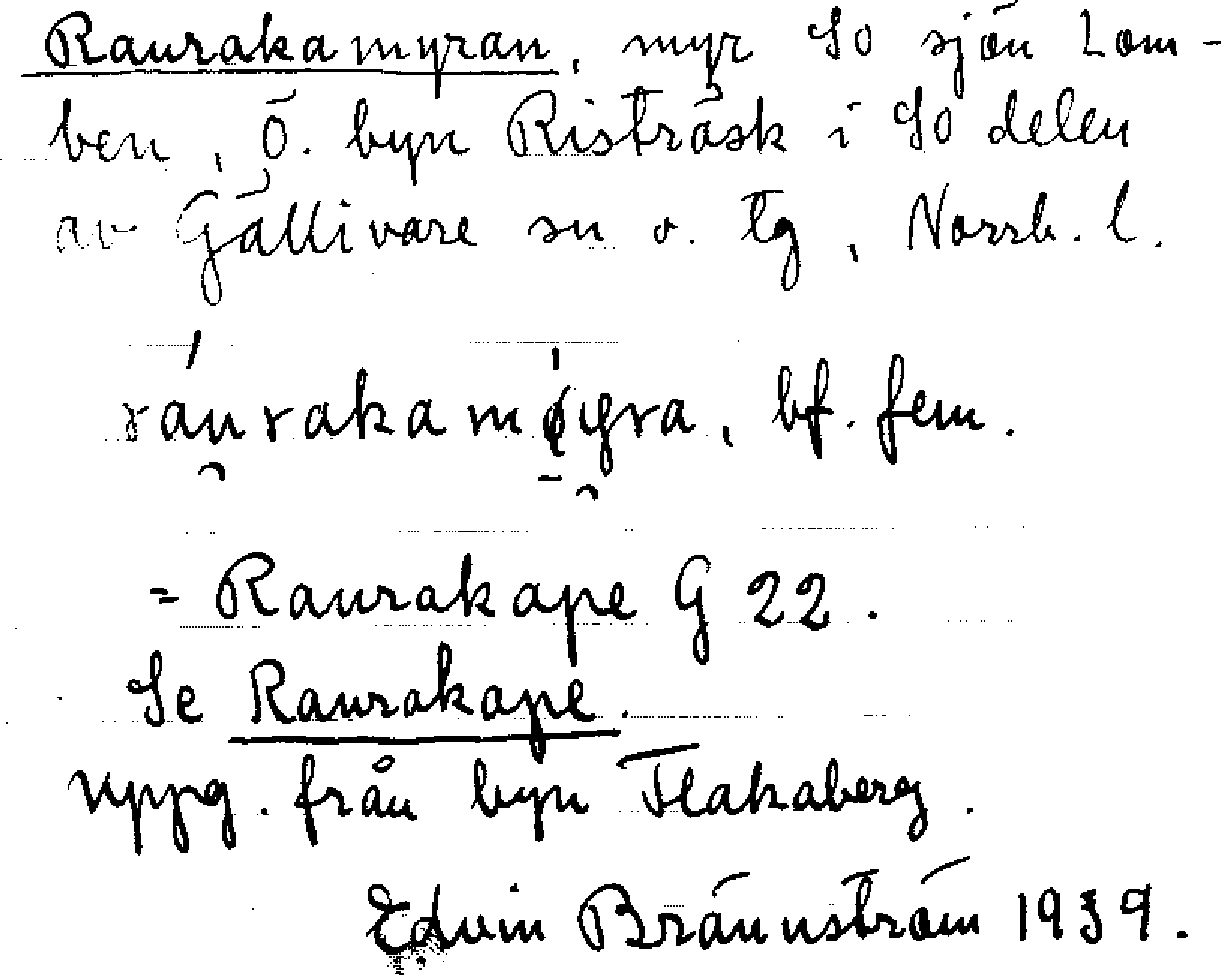 Raurakamyran, myr So sjön Lam-
ben, Ö. byn Risträsk i So delen
av Gällivare sn o. tg, Norrb. l.
ráu̯rakamy̯ra, bf. fem.
= Raurakape G 22.
Se Raurakape.
uppg. från byn Flakaberg.
Edvin Brännström 1939.